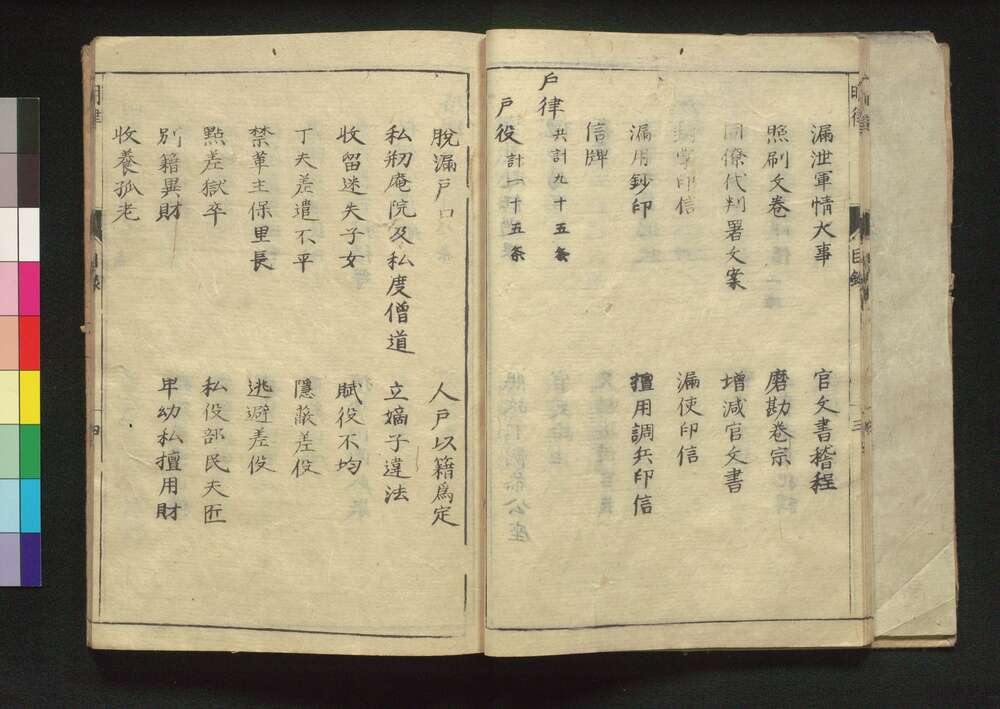 漏泄軍情大事
官文書稽程
照刷文卷
磨勘卷宗
同僚代判署文案
增減官文書
印信
漏使印信
漏用鈔印
擅用調兵印信
信牌
户律 共計九十五条
户役 計一十五条
脫漏戶口
人戶以籍爲定
私刱庵院及私度僧道
立嫡子違法
收留迷失子女
賦役不均
丁夫差遣不平
隱蔽差役
禁革主保里長
逃避差役
點差獄卒
私役部民夫匠
別籍異財
卑幼私擅用財
收養孤老
明律
目錄
三